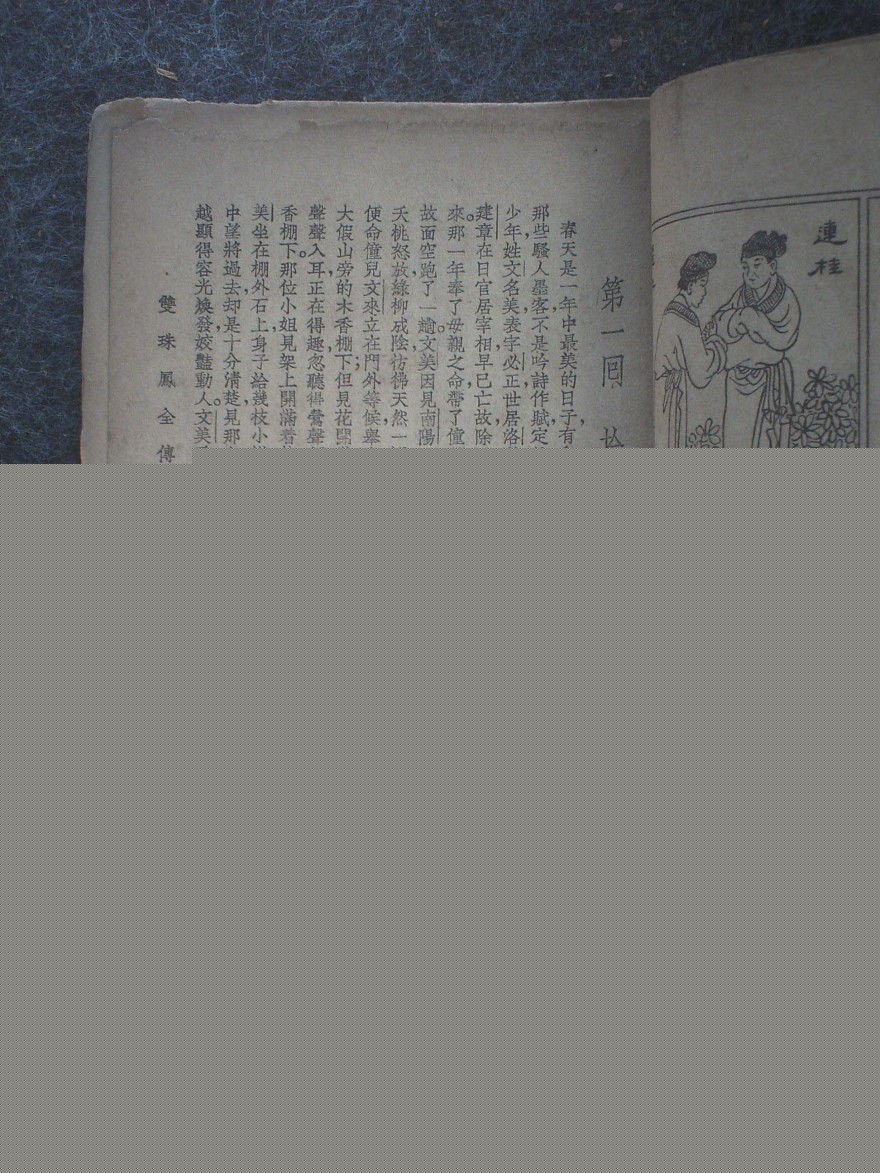 連桂
第一回
春天是一年中最美的日子,有
那些騷人墨客,不是吟詩作賦,定
少年,姓文名美,表字必正,世居洛
建章,在日官居宰相,早已亡故,除
來。那一年奉了母親之命,帶了僮
故面,空跑了一趟。文美因見南陽
夭桃怒放,綠柳成陰,彷彿天然一
便命僮兒文來立在門外等候,舉
大假山旁的木香棚下,但見花開
聲聲入耳,正在得趣,忽聽得鶯聲
香棚下。那位小姐見架上開滿着
美坐在棚外石上,身子給幾枝小
中望將過去,却是十分清楚,見那
越顯得容光煥發,姣豔動人。文美
雙珠鳳全傳